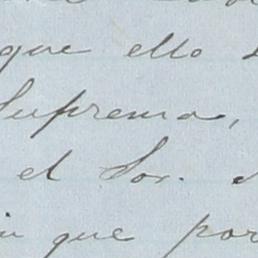 que ello
Suprema,
el Sor.
que por